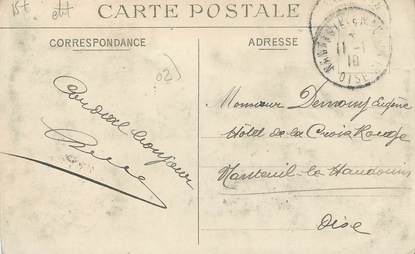 CARTE POSTALE
CORRESPONDANCE
ADRESSE
02
Cordial bonjour
11-1
10
OISE
Monsieur Demouy Eugène
Hôtel de la Croix Rouge
Nanteuil-le-Haudouin
Oise